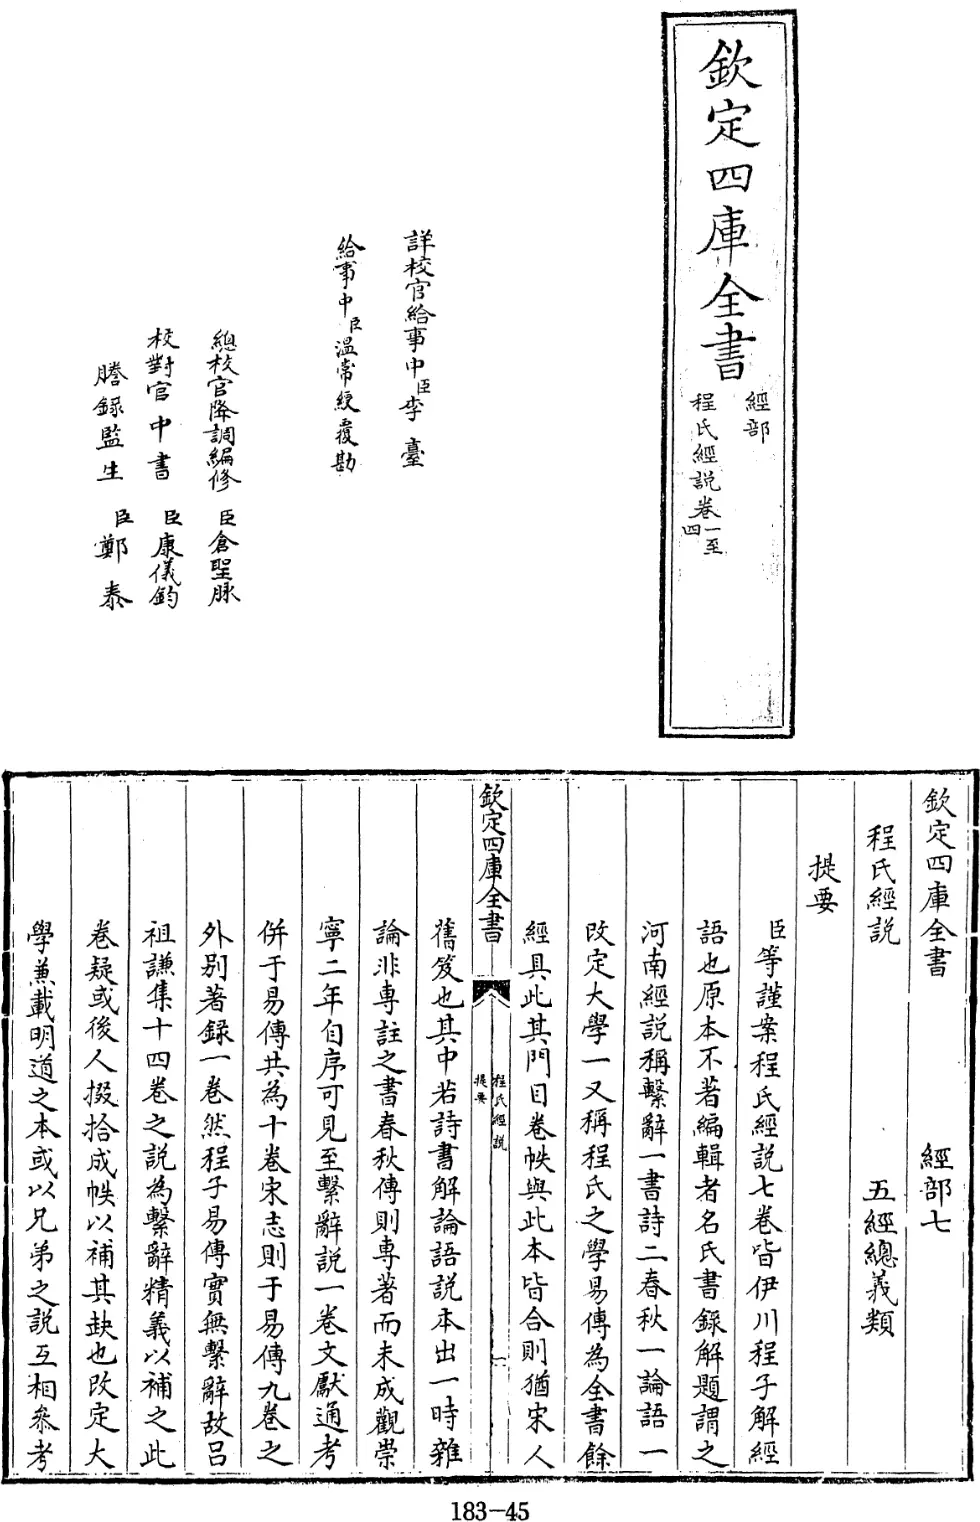 欽定四庫全書
經部
程氏經説卷一至四
詳校官給事中臣李臺
給事中臣温常綬覆勘
總校官降調編修臣倉聖脉
校對官中書臣康儀鈞
謄錄監生臣鄭泰
欽定四庫全書 經部七
程氏經説 五經總義類
提要
臣等謹案程氏經説七卷皆伊川程子解經
語也原本不著編輯者名氏書錄解題謂之
河南經説稱繫辭一書詩二春秋一論語一
改定大學一又稱程氏之學易傳為全書餘
經具此其門目卷帙與此本皆合則猶宋人
欽定四庫全書
程氏經説
提要
一
舊笈也其中若詩書解論語説本出一時雜
論非專註之書春秋傳則專著而未成觀崇
寧二年自序可見至繫辭説一卷文獻通考
併于易傳共為十卷宋志則于易傳九卷之
外别著録一卷然程子易傳實無繫辭故吕
祖謙集十四卷之説為繫辭精義以補之此
卷疑或後人掇拾成帙以補其缺也改定大
學兼載明道之本或以兄弟之説互相叅考
183-45